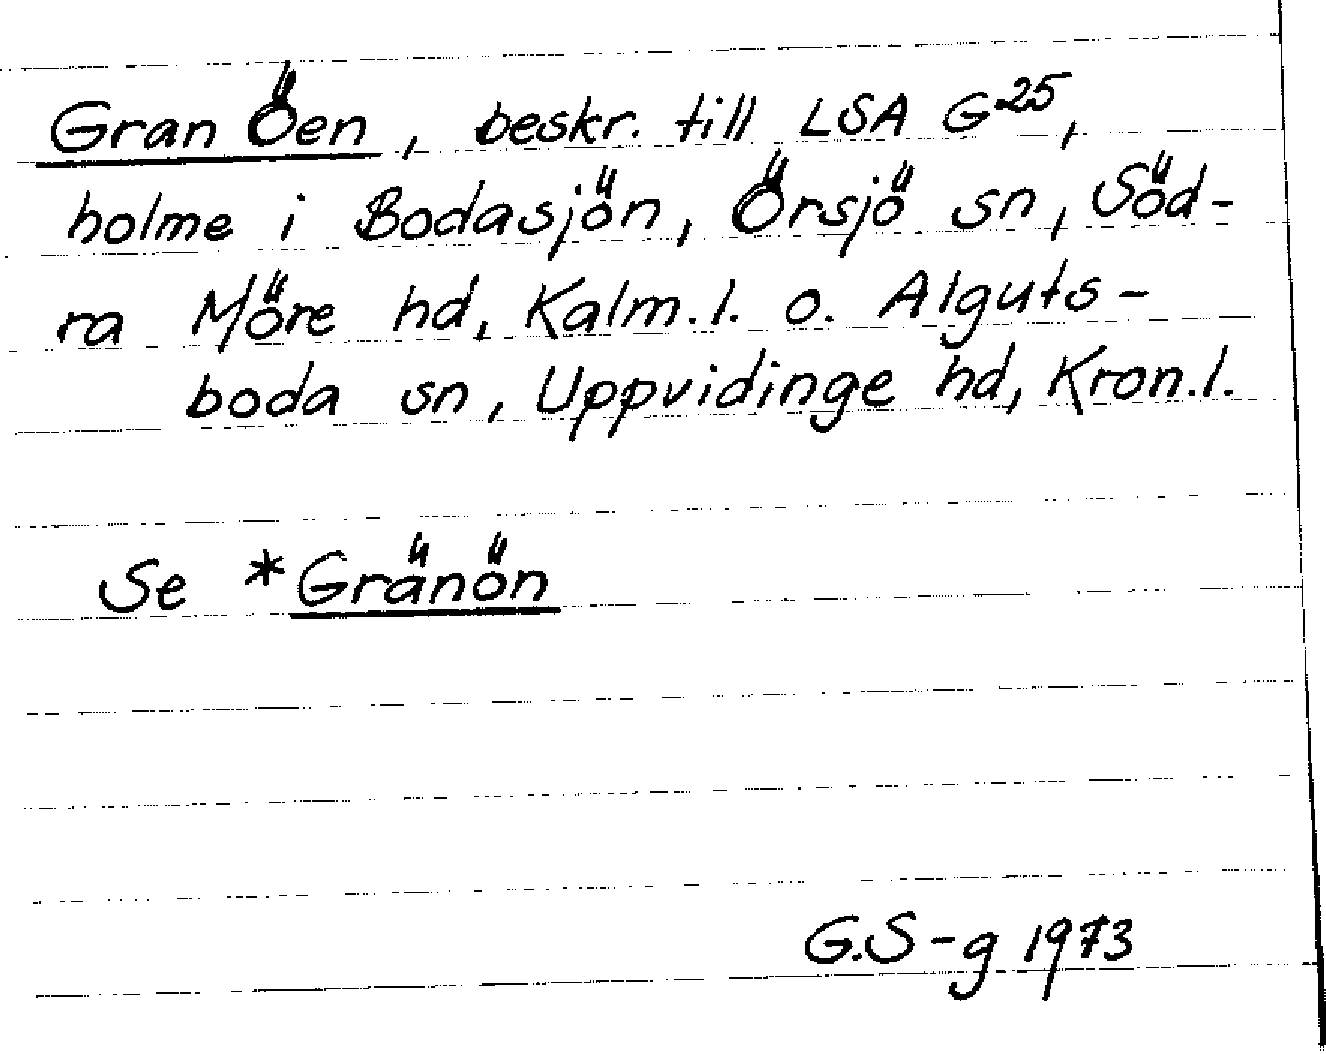 Gran Öen, beskr. till LSA G25,
holme i Bodasjön, Örsjö sn, Söd-
ra Möre hd, Kalm.l. o. Alguts-
boda sn, Uppvidinge hd, Kron.l.
Se *Gränön
G.S-g 1973